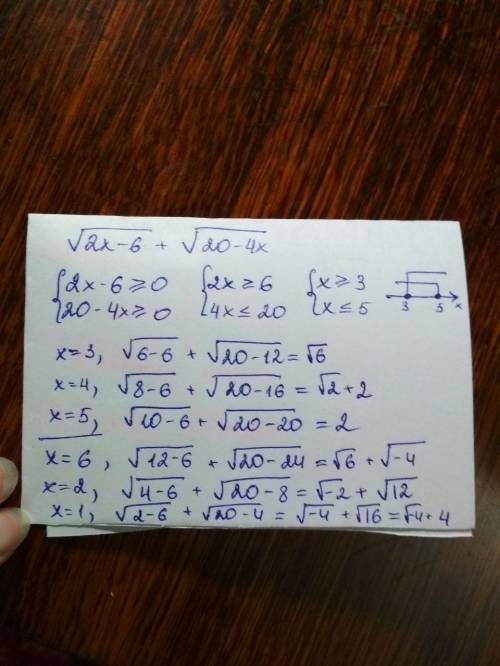 √(2x-6) + √(20-4x)
{2x-6≥0 {2x≥6 {x≥3
{20-4x≥0 {4x≤20 {x≤5 3 5 x
x=3, √(6-6) + √(20-12) = √6
x=4, √(8-6) + √(20-16) = √2+2
x=5, √(10-6) + √(20-20) = 2
x=6, √(12-6) + √(20-24) = √6 + √-4
x=2, √(4-6) + √(20-8) = √-2 + √12
x=1, √(2-6) + √(20-4) = √-4 + √16 = √4+4